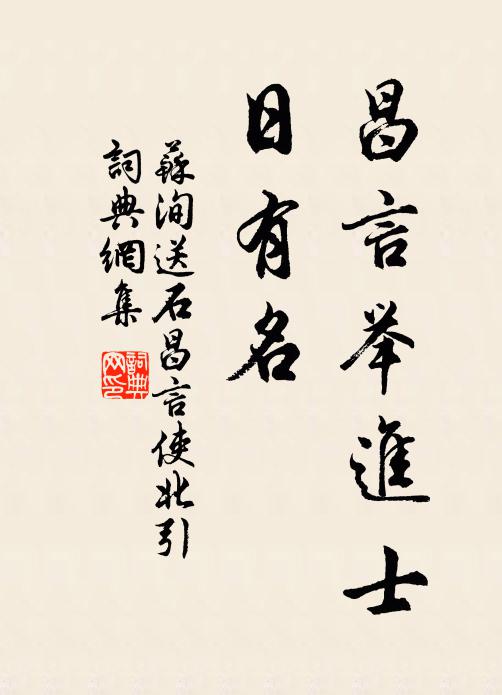 昌言举進士
日有名
蘇洵送石昌言使北引
詞典網集
詞典网印